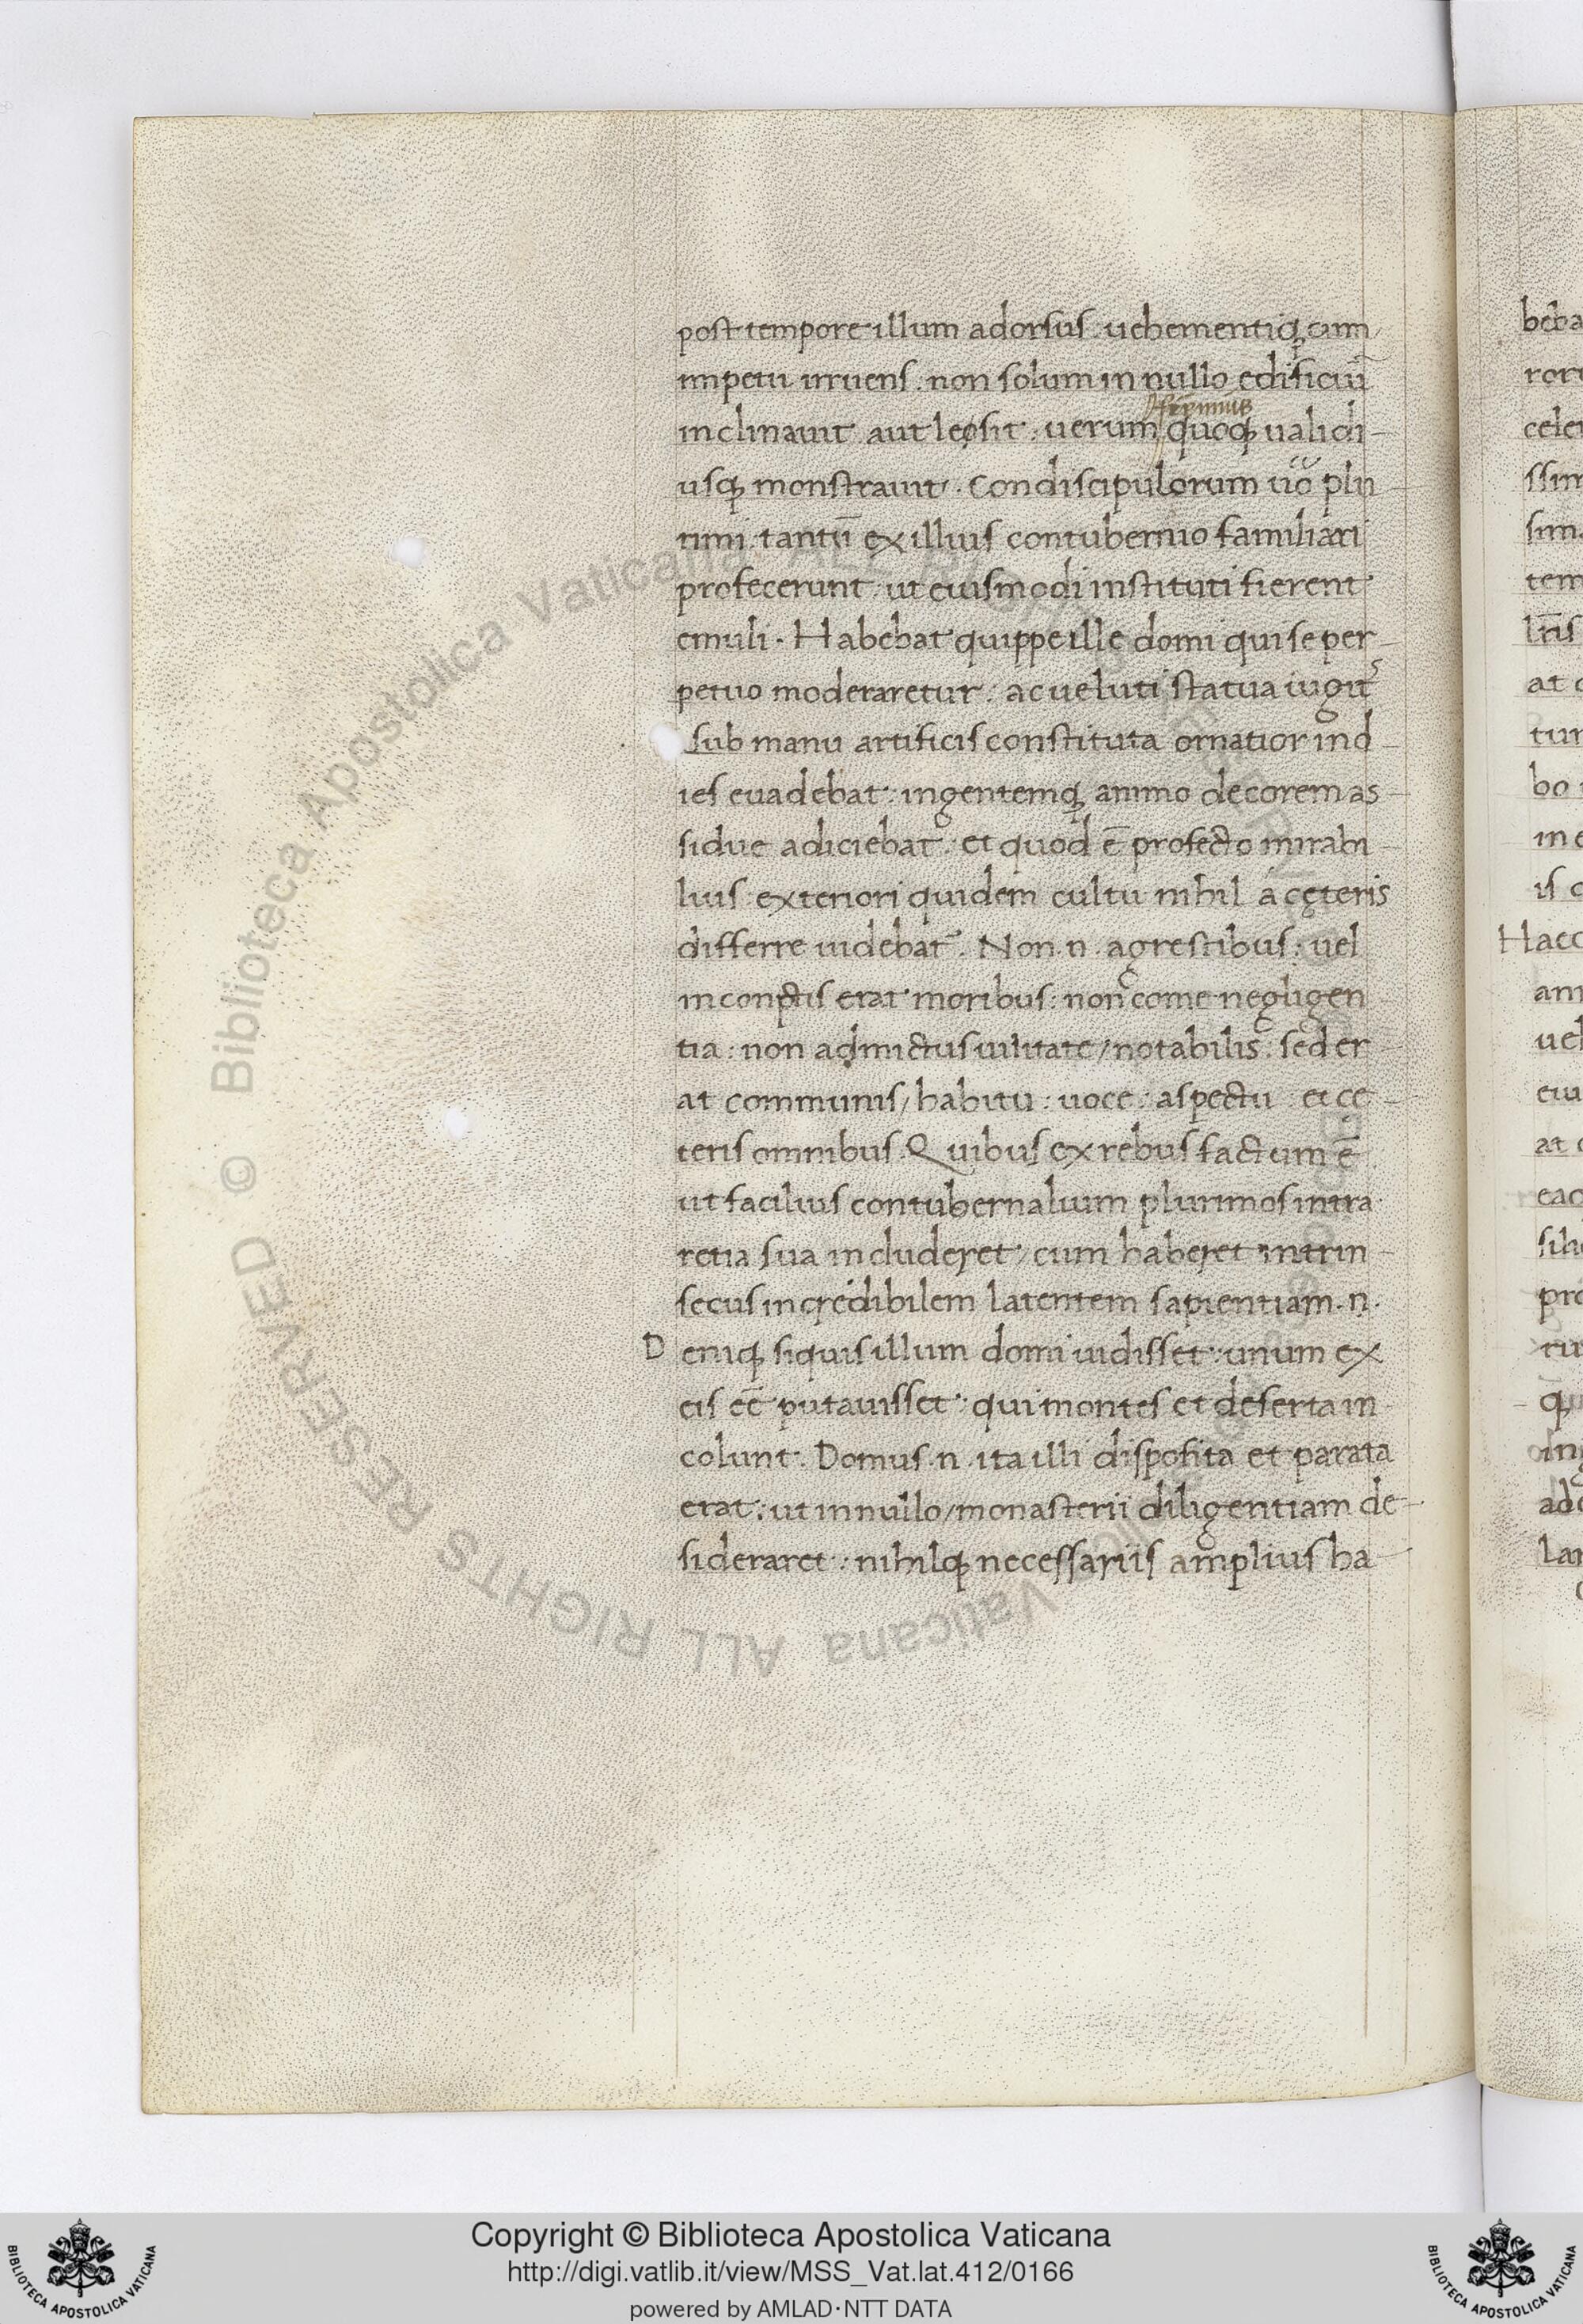 post tempore illum adorsus. uehementiq; cum
impetu irruens. non solum in nullo edificiū
inclinauit aut lęsit: uerum quoq; ualidi-
firmius
usq; monstrauit. Condiscipulorum uo plu
rimi tantū ex illius contubernio familiari
profecerunt: ut eiusmodi instituti fierent
emuli. Habebat quippe ille domi qui se per-
petuo moderaretur: ac ueluti statua iugit
sub manu artificis constituta ornatior in d-
ies euadebat: ingentemq; animo decorem as-
sidue adiciebat. et quod ē profecto mirabi-
lius exteriori quidem cultu nihil a cęteris
differre uidebat. Non .n. agrestibus: uel
inconptis erat moribus: non come negligen
tia: non admictus uilitate/notabilis: sed er-
at communis/habitu: uoce: aspectu et ce-
teris omnibus. Quibus ex rebus factum ē
ut facilius contubernalium plurimos intra
retia sua includeret/cum haberet intrin-
secus incredibilem latentem sapientiam .n.
D eniq; siquis illum domi uidisset: unum ex
eis eē putauisset: qui montes et deserta in
colunt. Domus .n. ita illi disposita et parata
erat: ut in nullo/monasterii diligentiam de-
sideraret: nihilq; necessariis amplius ha-
beba
celer
ssim
sima
tem
at
tur
bo
in
is
Haec
uel
at
pro
lar
© Biblioteca Apostolica Vaticana ALL RIGHTS RESERVED
Copyright © Biblioteca Apostolica Vaticana
http://digi.vatlib.it/view/MSS_Vat.lat.412/0166
powered by AMLAD·NTT DATA
BIBLIOTECA APOSTOLICA VATICANA
BIBLIOTECA APOSTOLICA VATICANA